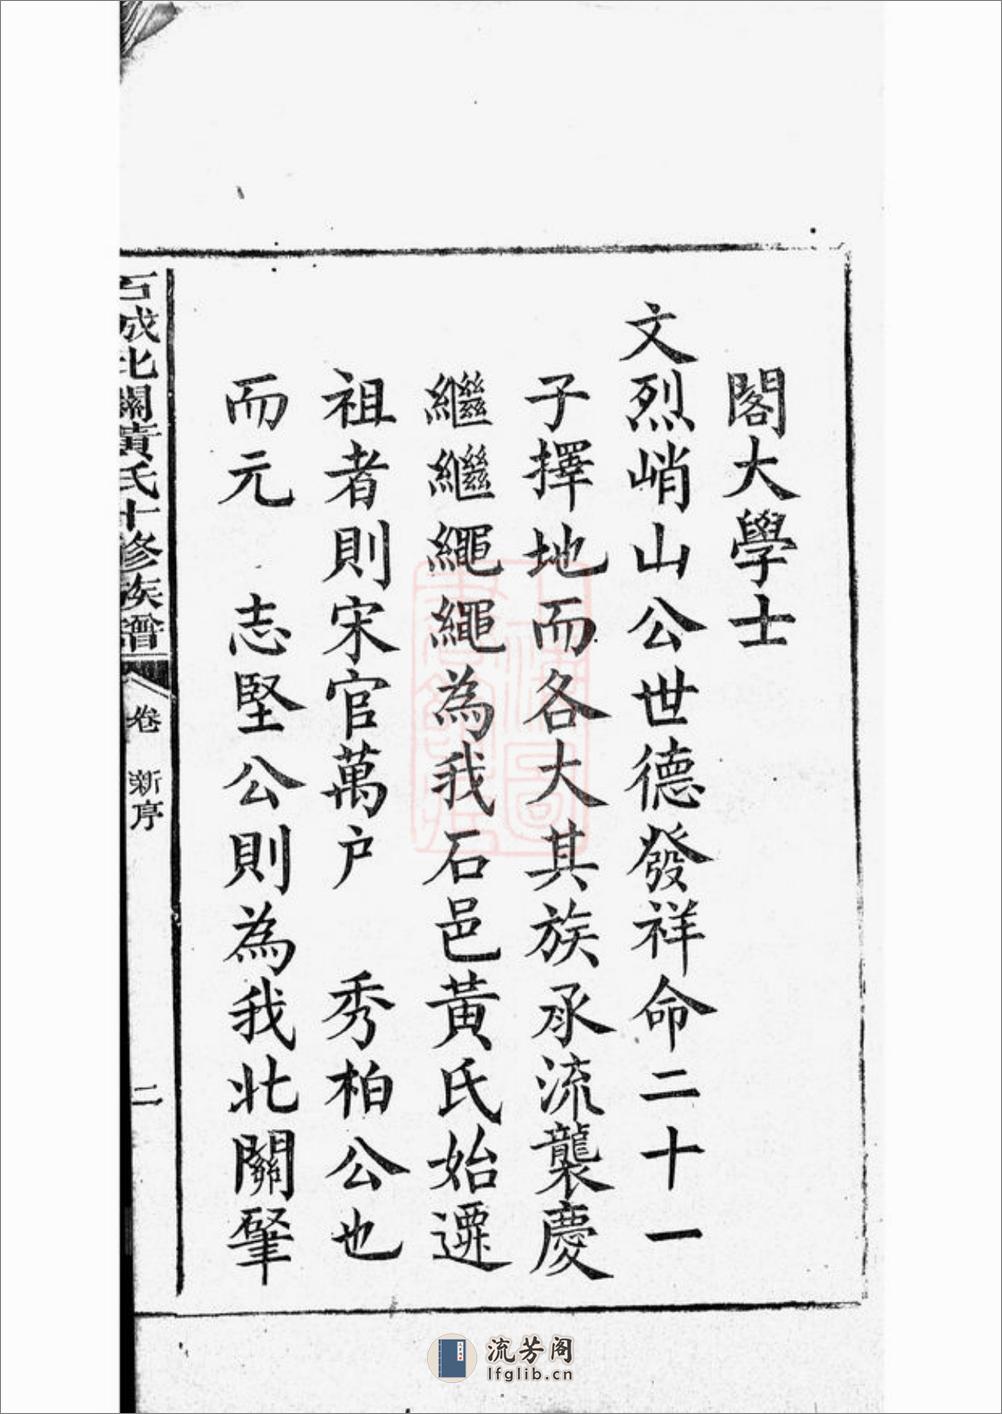 閣大學士
文烈峭山公世德發祥命二十一
子擇地而各大其族承流襲慶
繼繼繩繩為我石邑黃氏始遷
祖者則宋官萬户　秀柏公也
而元　志堅公則為我北關肇
石城北關黃氏十修族譜
卷　新序
二
流芳阁
lfglib.cn